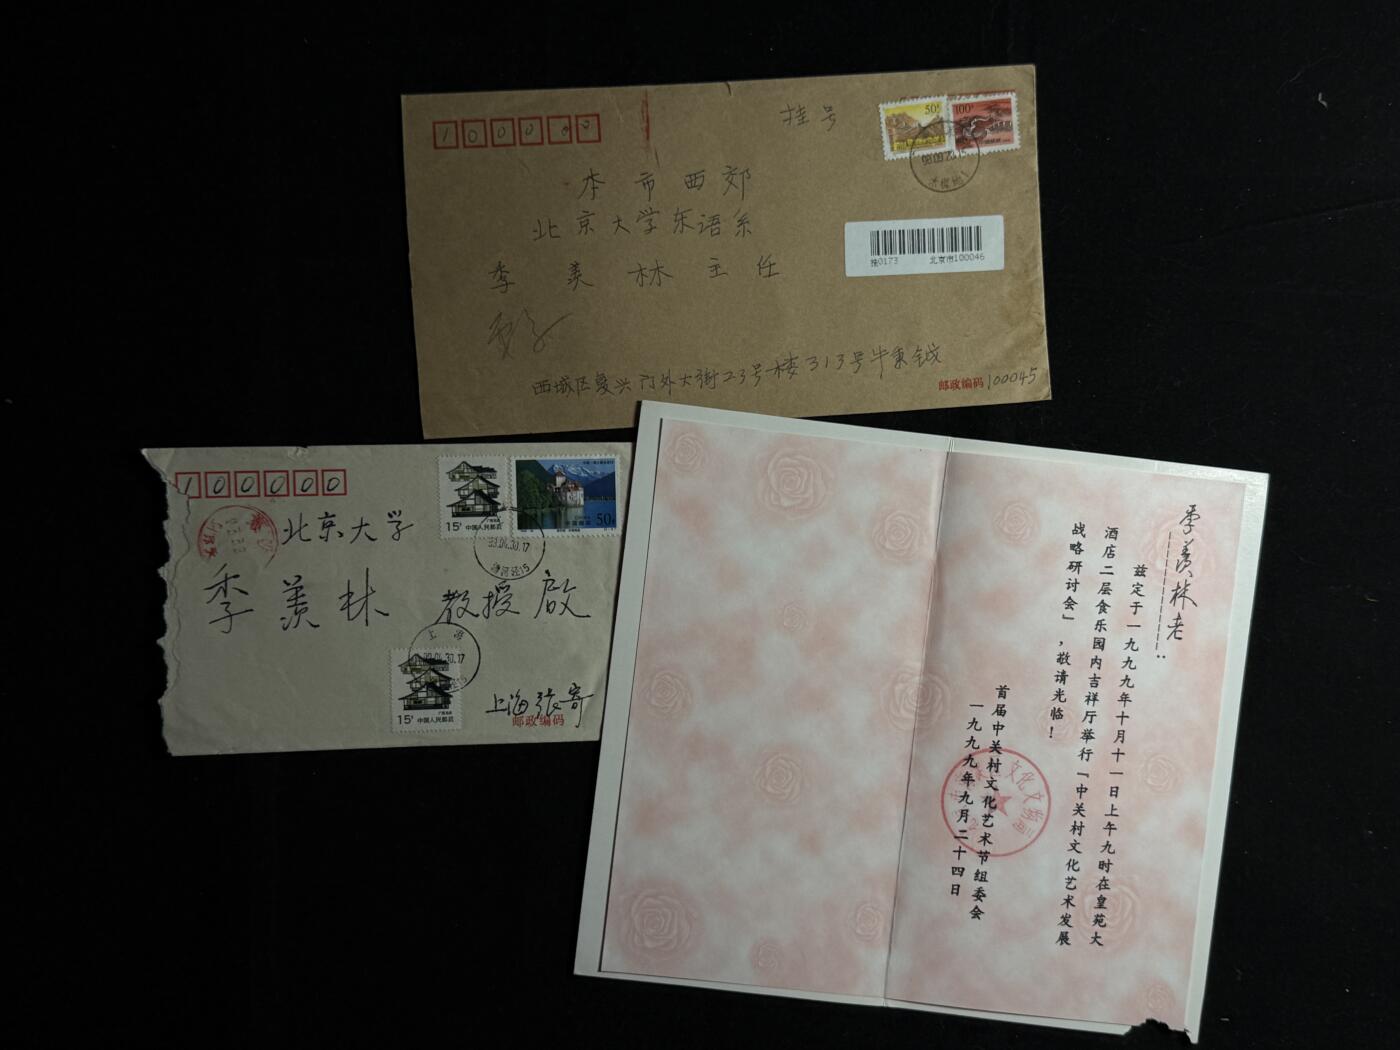 100000
挂号
50分
100分
98.09.23.15
本市西郊
北京大学东语系
季羡林主任
挂0173 北京市100046
西城区复兴门外大街23号楼313号牛秉钺
邮政编码 100045
100000
北京大学
季羡林 教授 啟
15分 中国人民邮政
50分
99.04.30.17
上海
99.04.30.17
15分 中国人民邮政
上海 张寄
邮政编码
季羡林老:
兹定于一九九九年十月十一日上午九时在皇苑大
酒店二层食乐园内吉祥厅举行『中关村文化艺术发展
战略研讨会』,敬请光临!
首届中关村文化艺术节组委会
一九九九年九月二十四日